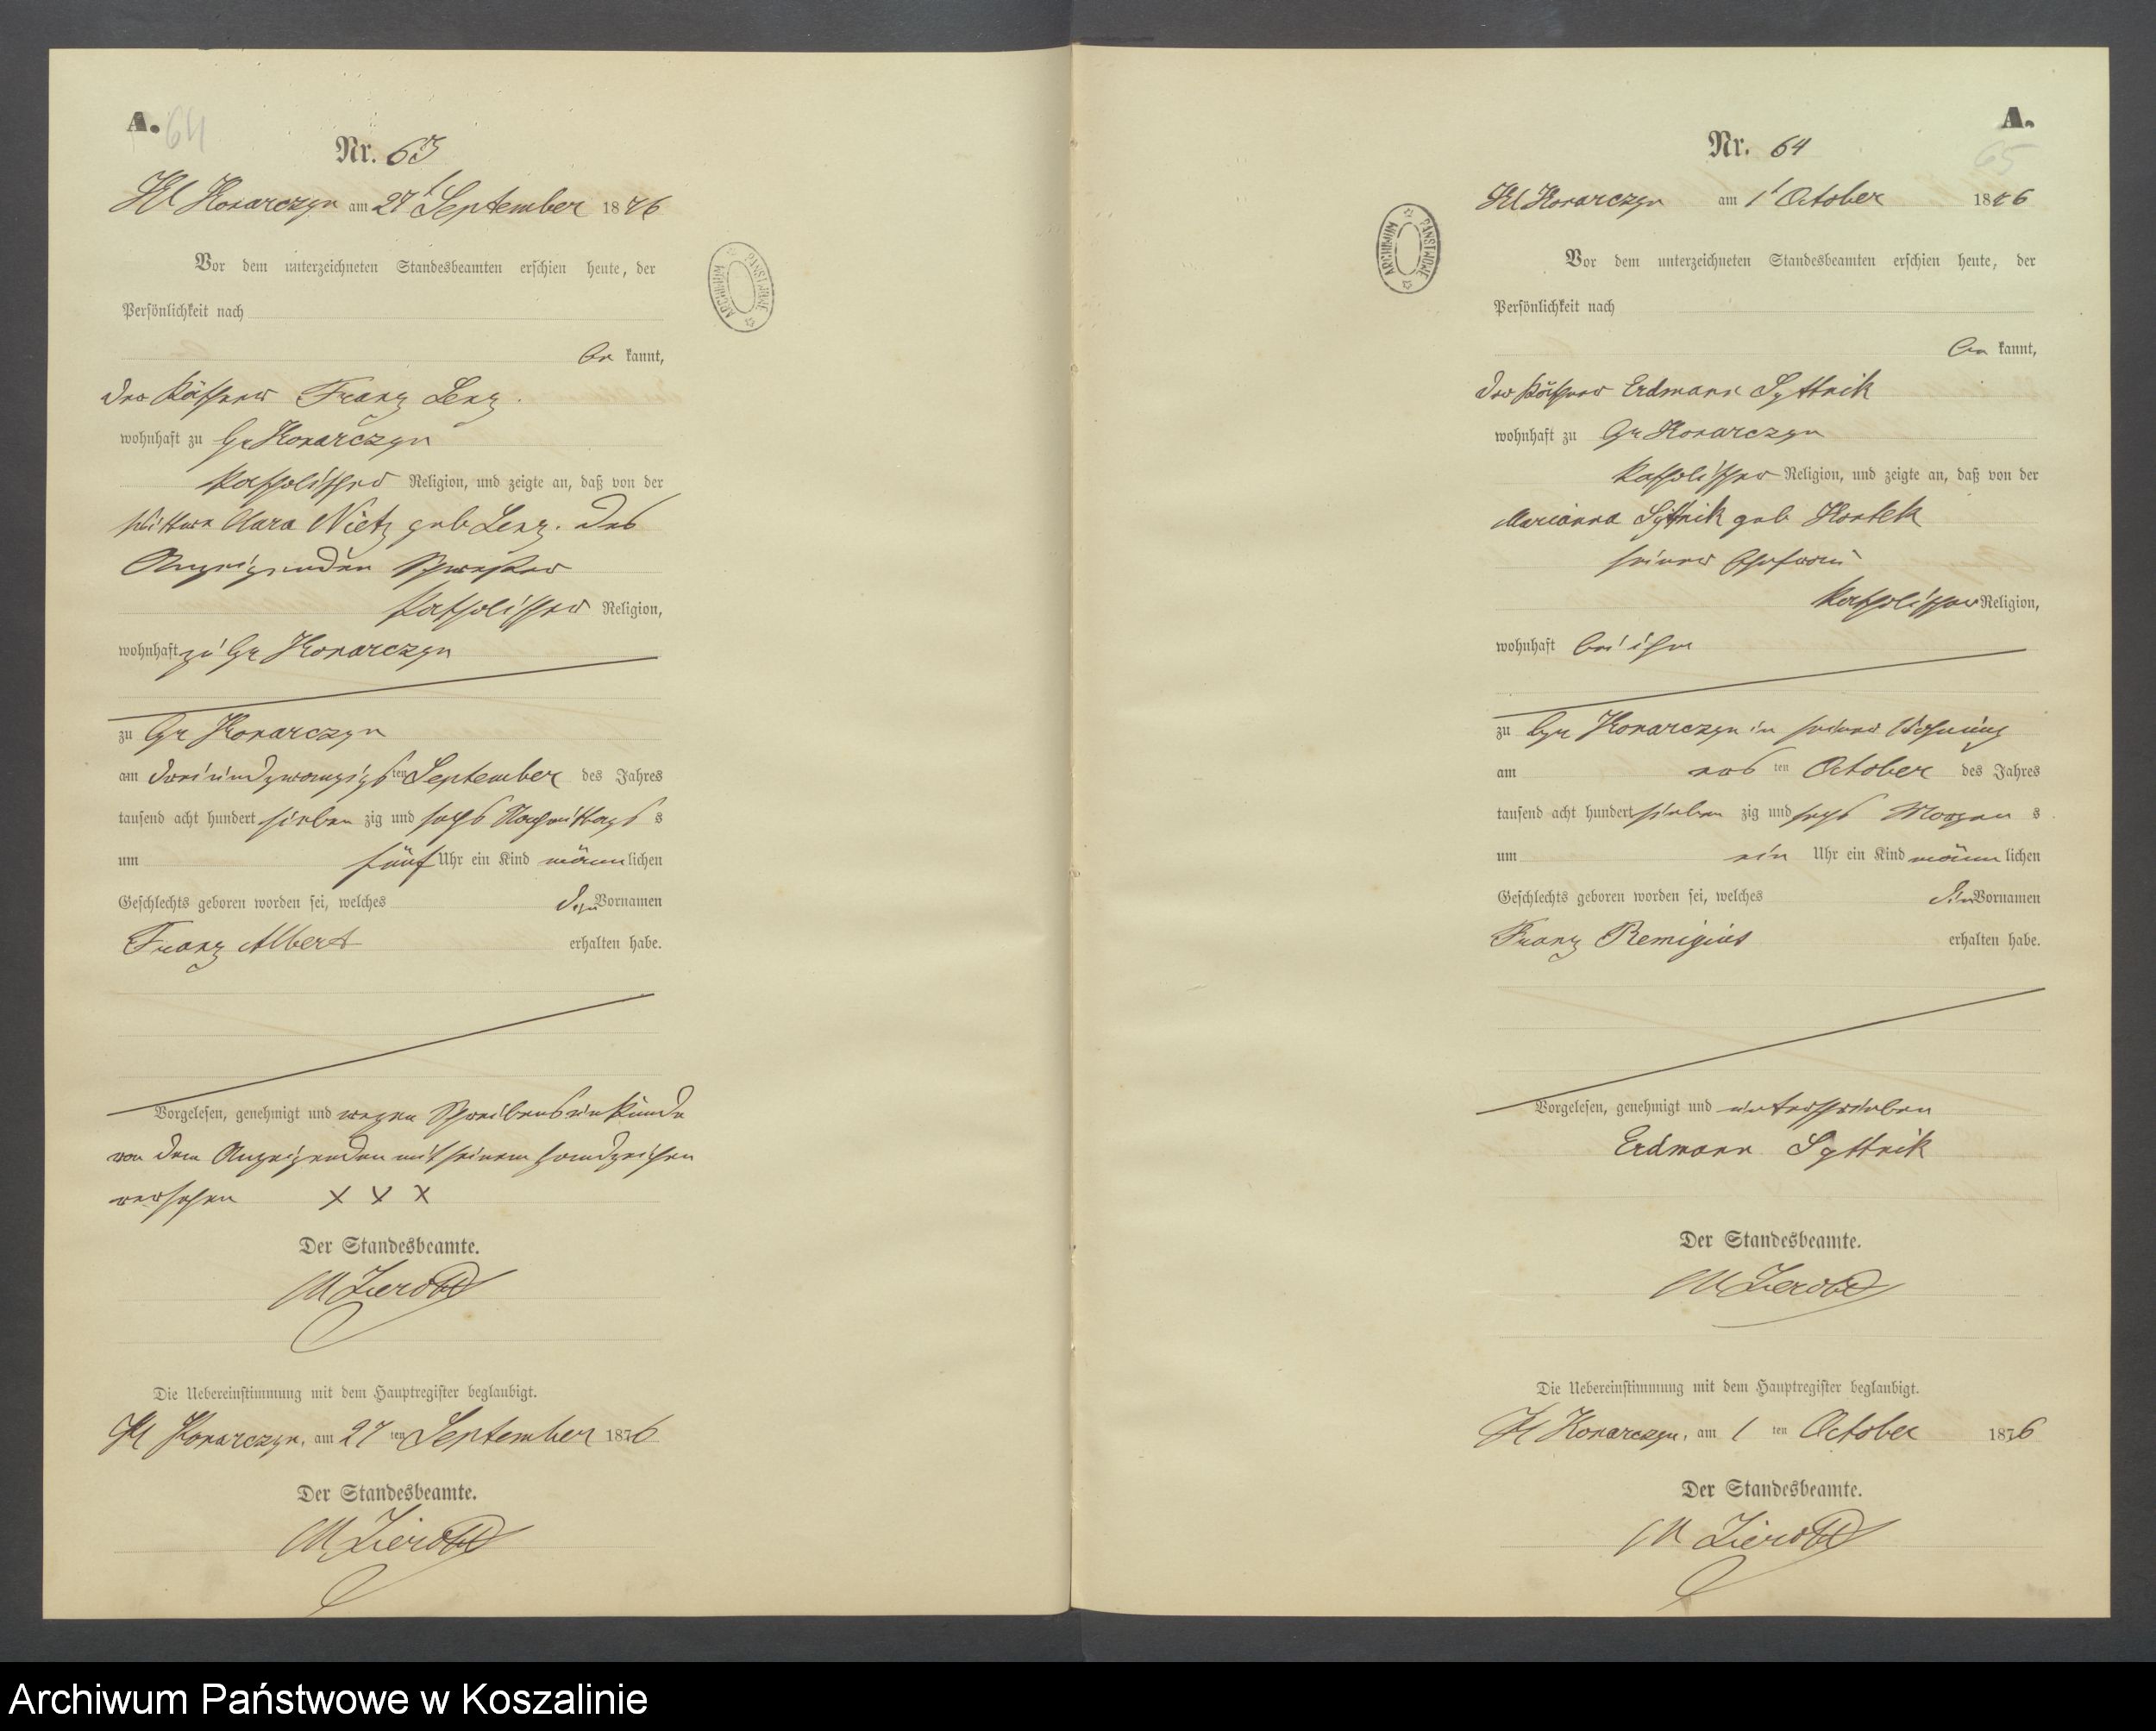 A.
64
Nr. 63
Kl Konarczyn am 27t September 1876
Vor dem unterzeichneten Standesbeamten erschien heute, der
Persönlichkeit nach
be kannt,
der Käthner Franz Lenz.
wohnhaft zu Gr Konarczyn
katholischer Religion, und zeigte an, daß von der
Wittwe Clara Nietz geb Lenz. des
Anzeigenden Schwester
katholischer Religion,
wohnhaft zu Gr Konarczyn
zu Gr Konarczyn
am dreiundzwanzigsten September des Jahres
tausend acht hundert sieben zig und sechs Nachmittags s
um fünf Uhr ein Kind männlichen
Geschlechts geboren worden sei, welches den Vornamen
Franz Albert erhalten habe.
Vorgelesen, genehmigt und wegen Schreibensunkunde
von dem Anzeigenden mit seinem Handzeichen
versehen x x x
Der Standesbeamte.
Die Uebereinstimmung mit dem Hauptregister beglaubigt.
Kl Konarczyn, am 27 ten September 1876
Der Standesbeamte.
ARCHIWUM PAŃSTWOWE
A.
65
Nr. 64
Kl Konarczyn am 1t October 1876
Vor dem unterzeichneten Standesbeamten erschien heute, der
Persönlichkeit nach
be kannt,
der Käthner Erdmann Syttnik
wohnhaft zu Gr Konarczyn
katholischer Religion, und zeigte an, daß von der
Marianna Syttnik geb
seiner Ehefrau
katholischer Religion,
wohnhaft bei ihm
zu Gr Konarczyn in seiner Wohnung
am ersten October des Jahres
tausend acht hundert sieben zig und sechs Morgen s
um ein Uhr ein Kind männlichen
Geschlechts geboren worden sei, welches die Vornamen
Franz Remigius erhalten habe.
Vorgelesen, genehmigt und unterschrieben
Erdmann Syttnik
Der Standesbeamte.
Die Uebereinstimmung mit dem Hauptregister beglaubigt.
Kl Konarczyn, am 1 ten October 1876
Der Standesbeamte.
ARCHIWUM PAŃSTWOWE
Archiwum Państwowe w Koszalinie